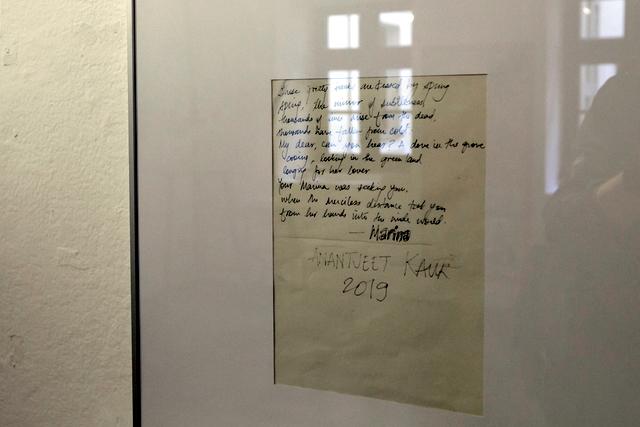 These pretty are teased by spring
spring, the mirror of subtleness,
thousands of may arise from the dead,
thousands have fallen from cold.
My dear, can you hear? A dove in the grove
cooing, looking in the green land
longing for her lover
Your Marina was seeking you.
when the merciless distance took you
from her hands into the wide world.
— Marina
AMANTJEET KAUR
2019